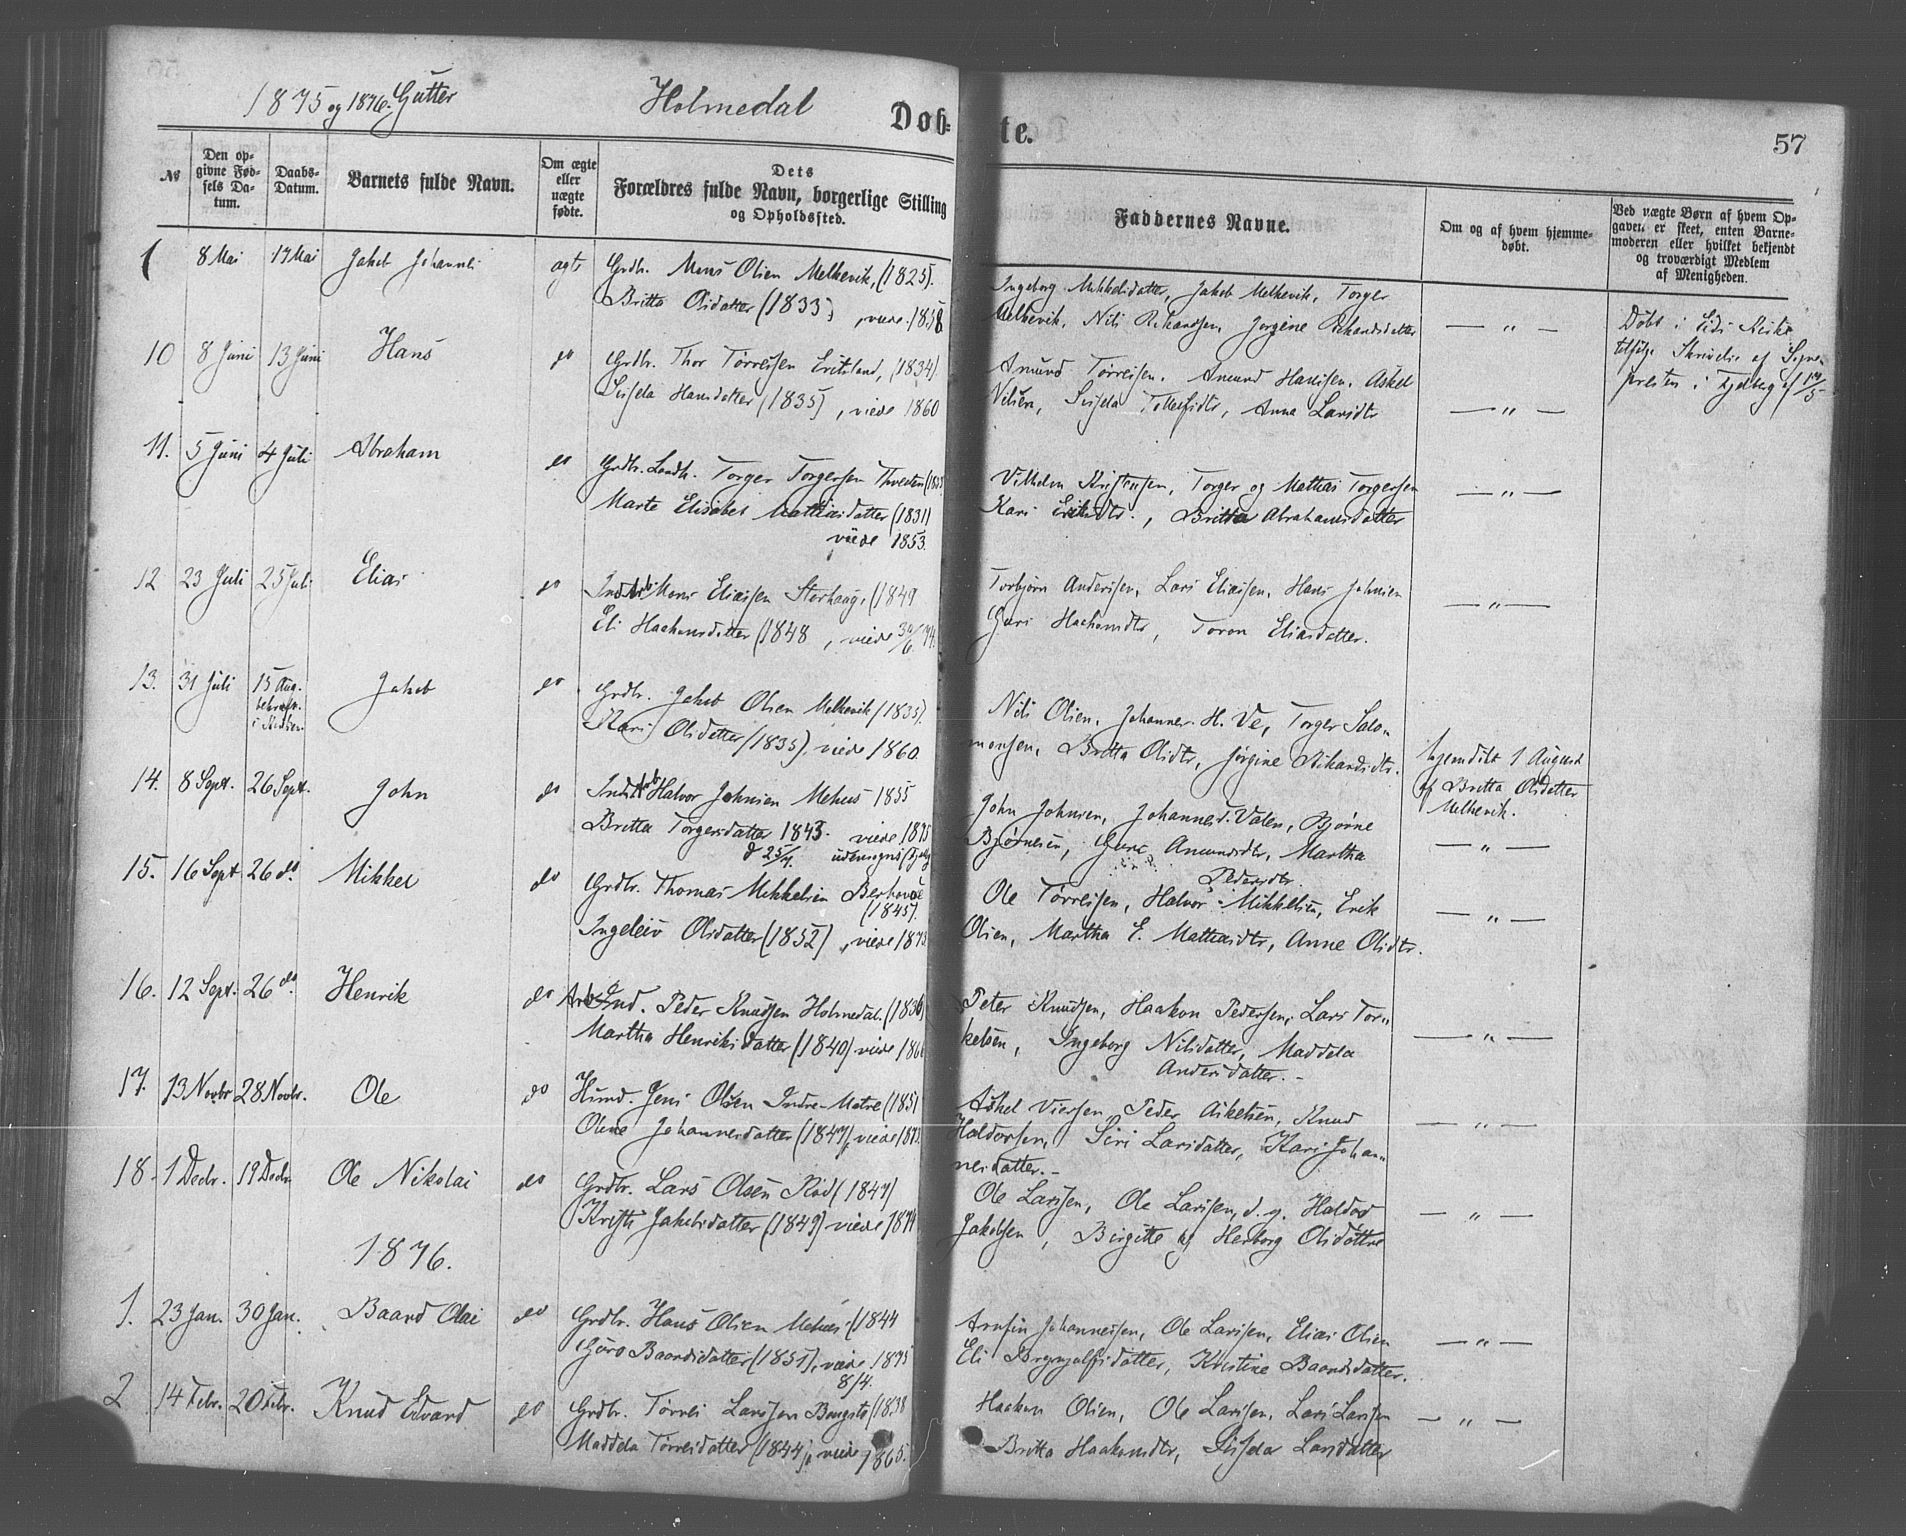 1875 og 1876. Gutter
Holmedal
Døb-
te.
57
No
Den op-
givne Fød-
sels Da-
tum.
Daabs-
Datum.
Barnets fulde Navn.
Om ægte
eller
uægte
fødte.
Dets
Forældres fulde Navn, borgerlige Stilling
og Opholdssted.
Faddernes Navne.
Om og af hvem hjemme-
døbt.
Ved uægte Børn af hvem Op-
gaven er skeet, enten Barne-
moderen eller hvilket bekjendt
og troværdigt Medlem
af Menigheden.
8 Mai 17 Mai Jakob Johannes Grdbr. Mons Olsen Melkevik, (1825).
Britta Olsdatter (1833), viede 1858
Ingeborg Mikkelsdatter, Jakob Melkevik, Torger
Melkevik, Nils Rikardsen, Jørgine Rikardsdatter — " —
Døbt i Eids Kirke
tilfølge Skrivelse af Sogne-
presten i Fjelberg af
10 8 Juni 13 Juni Hans do Grdbr. Thor Tørresen Eritsland, (1834).
Sissela Hansdatter (1835), viede 1860
Amund Tørresen, Amund Hansen, Askel
Nilsen, Sissela Tollefsdtr, Anna Larsdtr — " —
11. 5 Juni 4 Juli Abraham do Grdbr. Landh. Torger Torgersen
Marte Elisabet Mathiasdatter (1831)
viede 1853.
Vilhelm Kristensen, Torger og Mathias Torgersen
Kari Eriksdtr., Britta Abrahamsdatter — " —
12 23 Juli 25 Juli Elias do Mons Eliassen Storhaug, (1849
Eli Haakonsdatter (1848, viede 30/6 74.
Torbjørn Andersen, Lars Eliassen, Hans Johnsen
Guri Haakonsdtr, Toron Eliasdatter. — " —
13. 31 Juli 15 Aug. Jakob do Grdbr. Jakob Olsen Melkevik (1835).
Kari Olsdatter (1835), viede 1860.
Nils Olsen, Johannes H. Ve, Torger Salo-
monsen, Britta Olsdtr, Jørgine Rikardsdtr.
hjemdøbt 1 August
af Britta Olsdatter
Melkevik.
14. 8 Sept. 26 Sept. John do Halvor Johnsen Mehus 1855
Britta Torgersdatter 1843. viede 1875
John Johnsen, Johannes Valen, Bjørne
Bjørnesen, Guri Amundsdtr, Martha
Pedersdtr. — " —
15. 16 Sept 26 do. Mikkel do Grdbr. Thomas Mikkelsen
(1845).
Ingeleiv Olsdatter (1852), viede 1873
Ole Tørresen, Halvor Mikkelsen, Erik
Olsen, Martha E. Mathiasdtr, Anne Olsdtr. — " —
16. 12 Sept. 26 do. Henrik do Ind. Peder Knudsen Holmedal. (1836)
Martha Henriksdatter (1840) viede
Peter Knudsen, Haakon Pedersen, Lars Tor-
kelsen, Ingeborg Nilsdatter, Maddela
Andersdatter. — — " —
17. 13 Novbr 28 Novbr. Ole do Husmd. Jens Olsen Indre-Matre (1851
Olene Johannesdatter (1847), viede 1873.
Askel Viersen, Peder Askelsen, Knud
Haldorsen, Siri Larsdatter, Kari Johan-
nesdatter. — — " —
18. 1 Decbr. 19 Decbr. Ole Nikolai do Grdbr. Lars Olsen Rød (1847)
Kristi Jakobsdatter (1849) viede 1874
Ole Larssen, Ole Larssen, d. y. Haldor
Jakobsen, Birgitte og Herborg Olsdøttre — " —
1876.
1. 23 Jan. 30 Jan. Baard Olai do Grdbr. Hans Olsen Mehus (1844
Guro Baardsdatter (1851), viede 1875
8/4.
Arnfin Johannessen, Ole Larssen, Elias Olsen
Eli Brynjulfsdatter, Kristine Baardsdatter. — " —
2 14 Febr. 20 Febr. Knud Edvard do Grdbr. Tørres Larssen (1838
Maddela Tørresdatter (1844), viede 1865.
Haakon Olsen, Ole Larssen, Lars Larssen
Britta Haakonsdtr, Sissela Larsdatter — " —